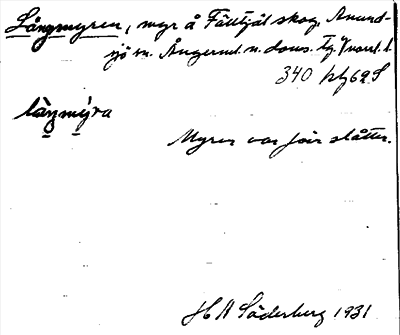 Långmyren, myr å Fätttjäl skog, Anund-
sjö sn. Ångerml. n. doms. Tg. Y nord. l
340 kbl 62 S
lȧŋmýra
Myren var förr slåtter.
H H Söderberg 1931